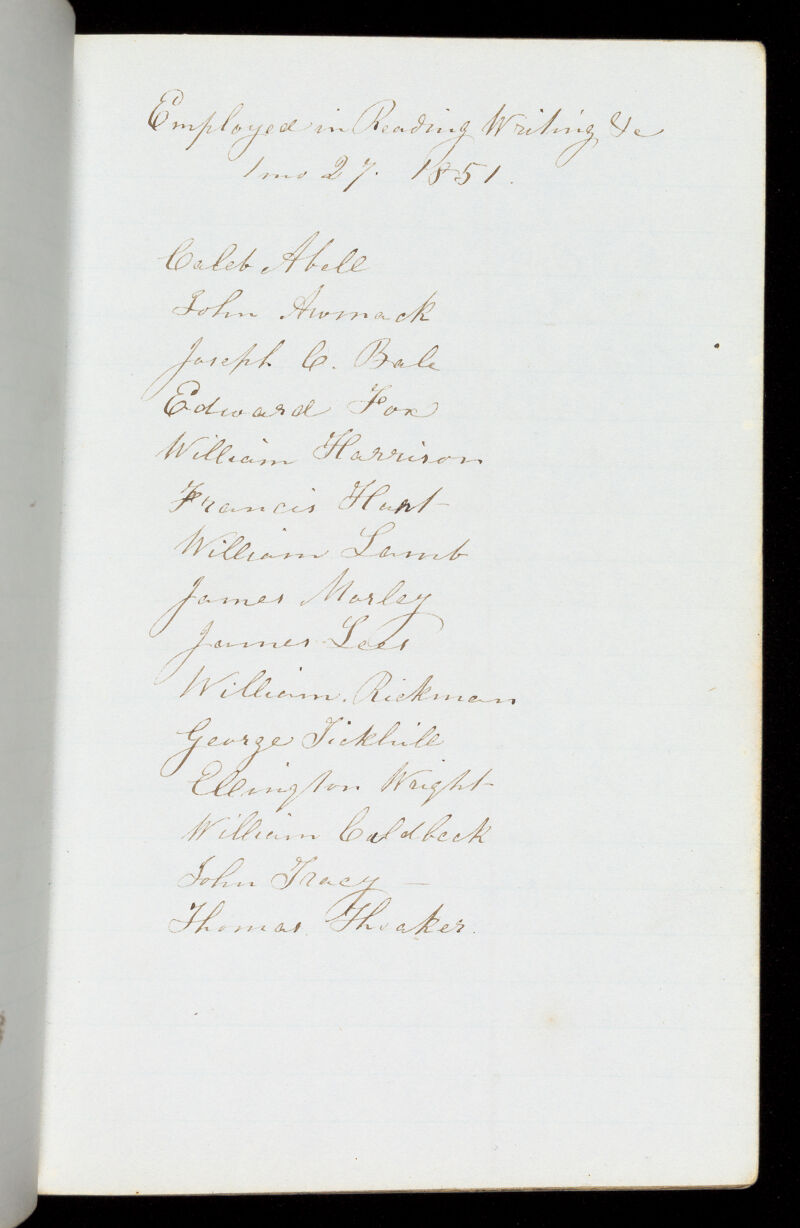 Employed in Reading Writing &c
1 mo 27. 1851.
Caleb Abell
John Awmack
Joseph C. Bale
Edward Fox
William Harrison
Francis Hunt
William Lamb
James Morley
James Lees
William Rickman
George Tickhill
Ellington Wright
William Caldbeck
John Tracy —
Thomas Thoaker.